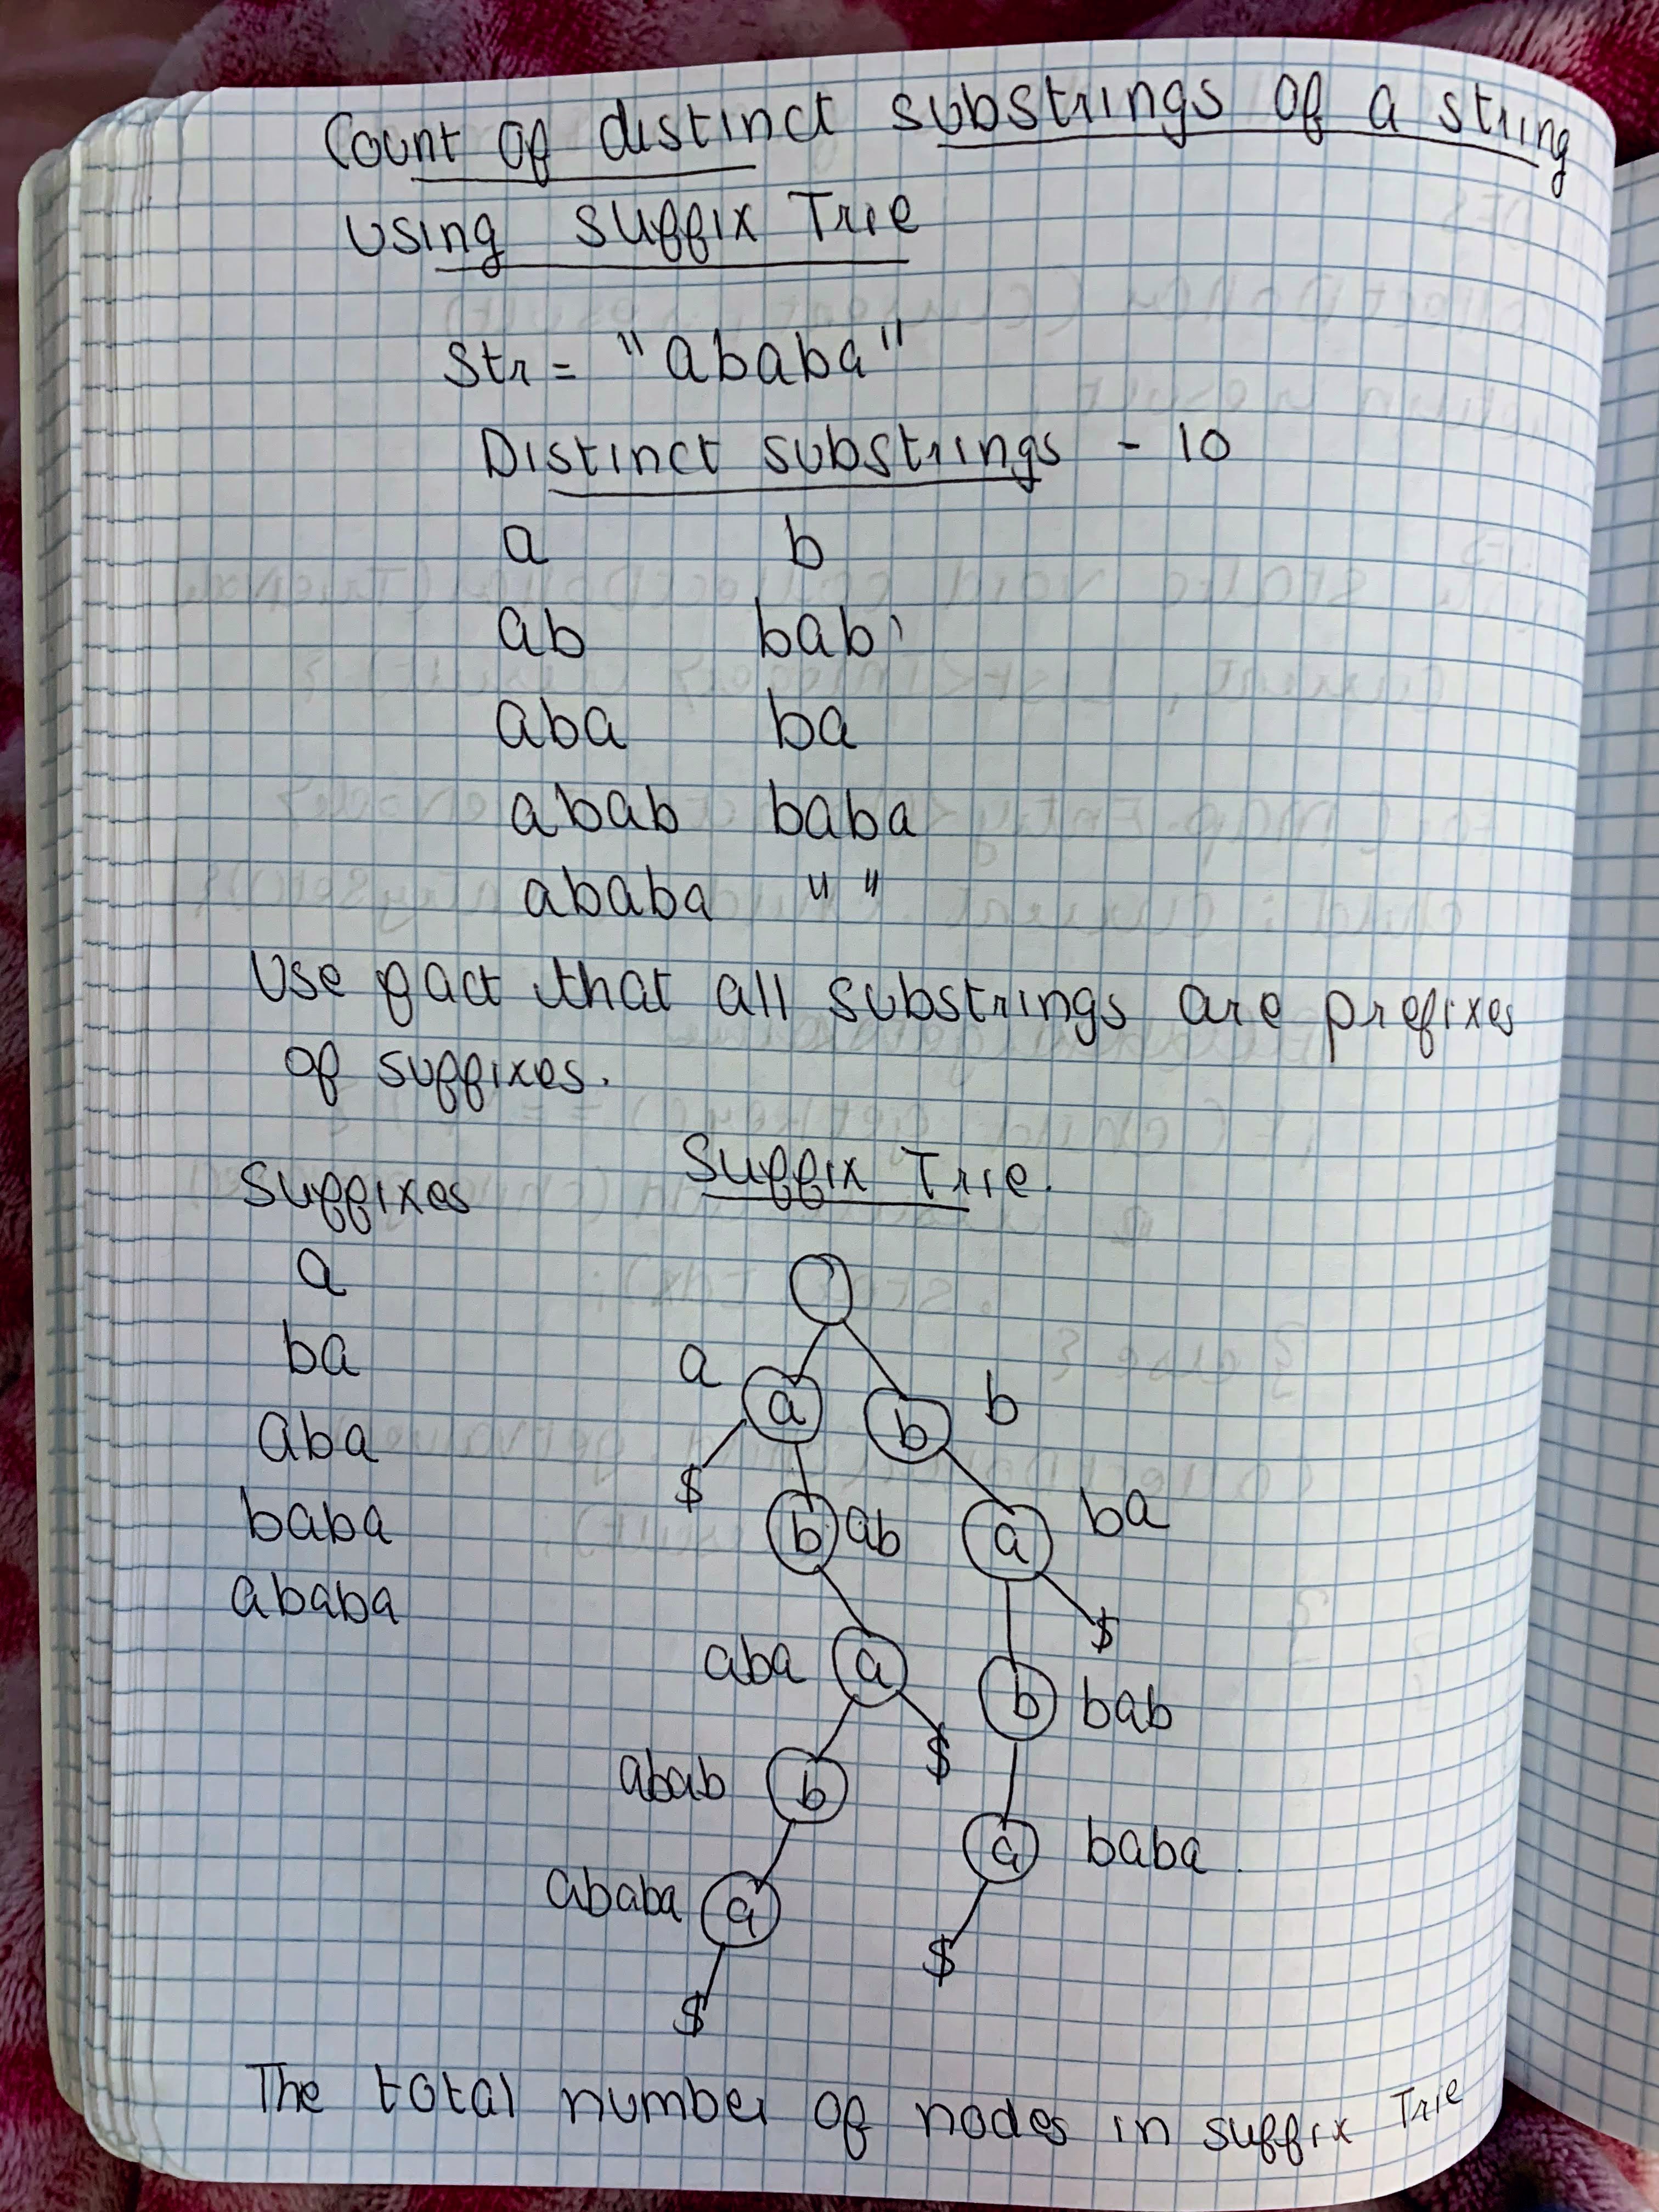 Count of distinct substrings of a string
using suffix Trie
str = "ababa"
Distinct substrings - 10
a b
ab bab
aba ba
abab baba
ababa " "
Use fact that all substrings are prefixes
of suffixes.
Suffixes Suffix Trie.
a
ba
aba
baba
ababa
a a b b
$ b ab a ba
$
aba a b bab
$
abab b
a baba
ababa a
$
$
The total number of nodes in suffix Trie